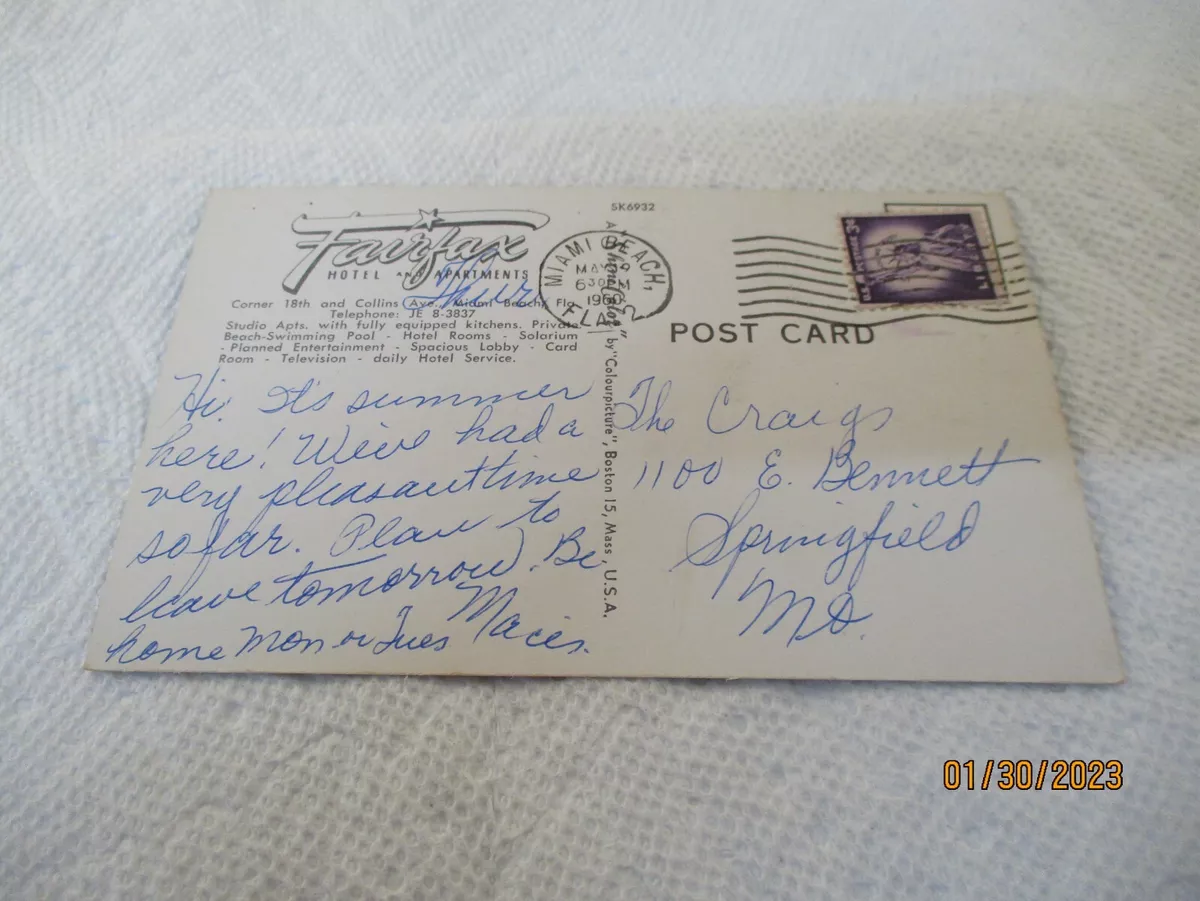 SK6932
Fairfax
HOTEL AND APARTMENTS
Thur
Corner 18th and Collins Ave., Miami Beach, Fla.
Telephone: JE 8-3837
Studio Apts. with fully equipped kitchens. Private
Beach-Swimming Pool - Hotel Rooms - Solarium
- Planned Entertainment - Spacious Lobby - Card
Room - Television - daily Hotel Service.
Hi. It's summer
here! We've had a
very pleasant time
so far. Plan to
leave tomorrow. Be
home Mon or Tues
Macies.
by "Colourpicture", Boston 15, Mass., U.S.A.
MIAMI BEACH,
630 PM
1960
FLA
U.S. POSTAGE 3¢
POST CARD
The Craigs
1100 E. Bennett
Springfield
Mo.
01/30/2023